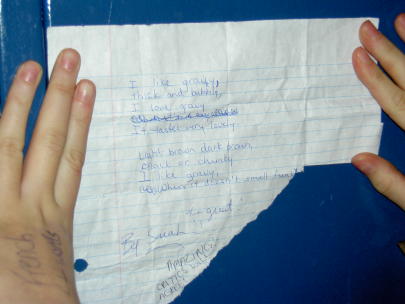 I like gravy,
Thick and bubbly,
I love gravy
It tastes very lovely.
Light brown dark brown,
or chunky
I like gravy,
When it doesn't smell funky
great!
By Sarah
AMAZING
French